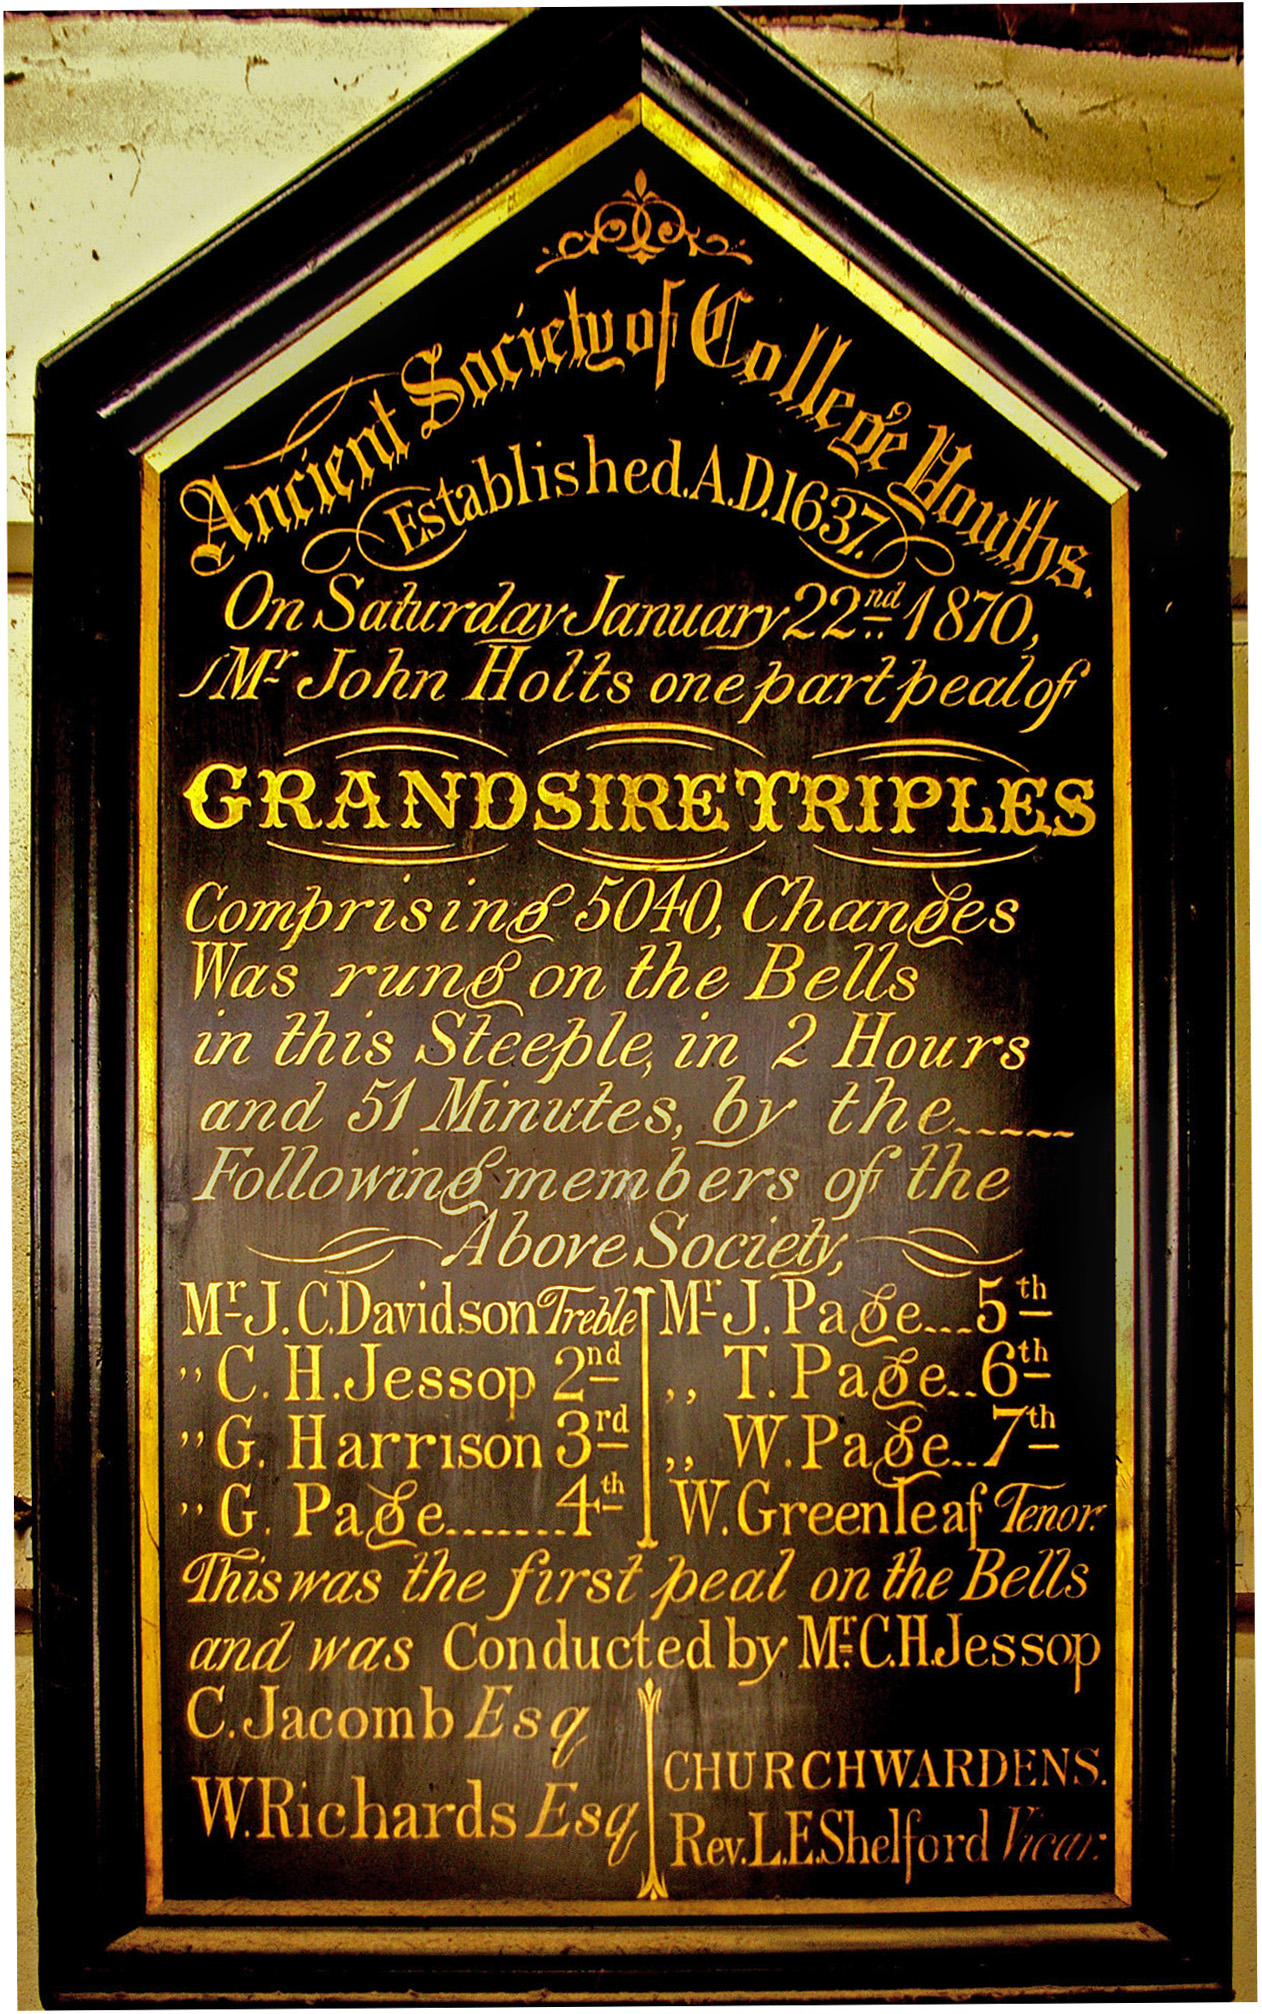 Ancient Society of College Youths.
Established.A.D.1637.
On Saturday January 22nd 1870,
Mr John Holts one part peal of
GRANDSIRE TRIPLES
Comprising 5040, Changes
Was rung on the Bells
in this Steeple, in 2 Hours
and 51 Minutes, by the
Following members of the
Above Society,
Mr J. C. Davidson Treble
,, C. H. Jessop 2nd
,, G. Harrison 3rd
,, G. Page.......4th
Mr J. Page....5th
,, T. Page..6th
,, W. Page..7th
W. Greenleaf Tenor.
This was the first peal on the Bells
and was Conducted by Mr. C.H.Jessop
C. Jacomb Esq
W. Richards Esq
CHURCHWARDENS.
Rev. L.E.Shelford Vicar.